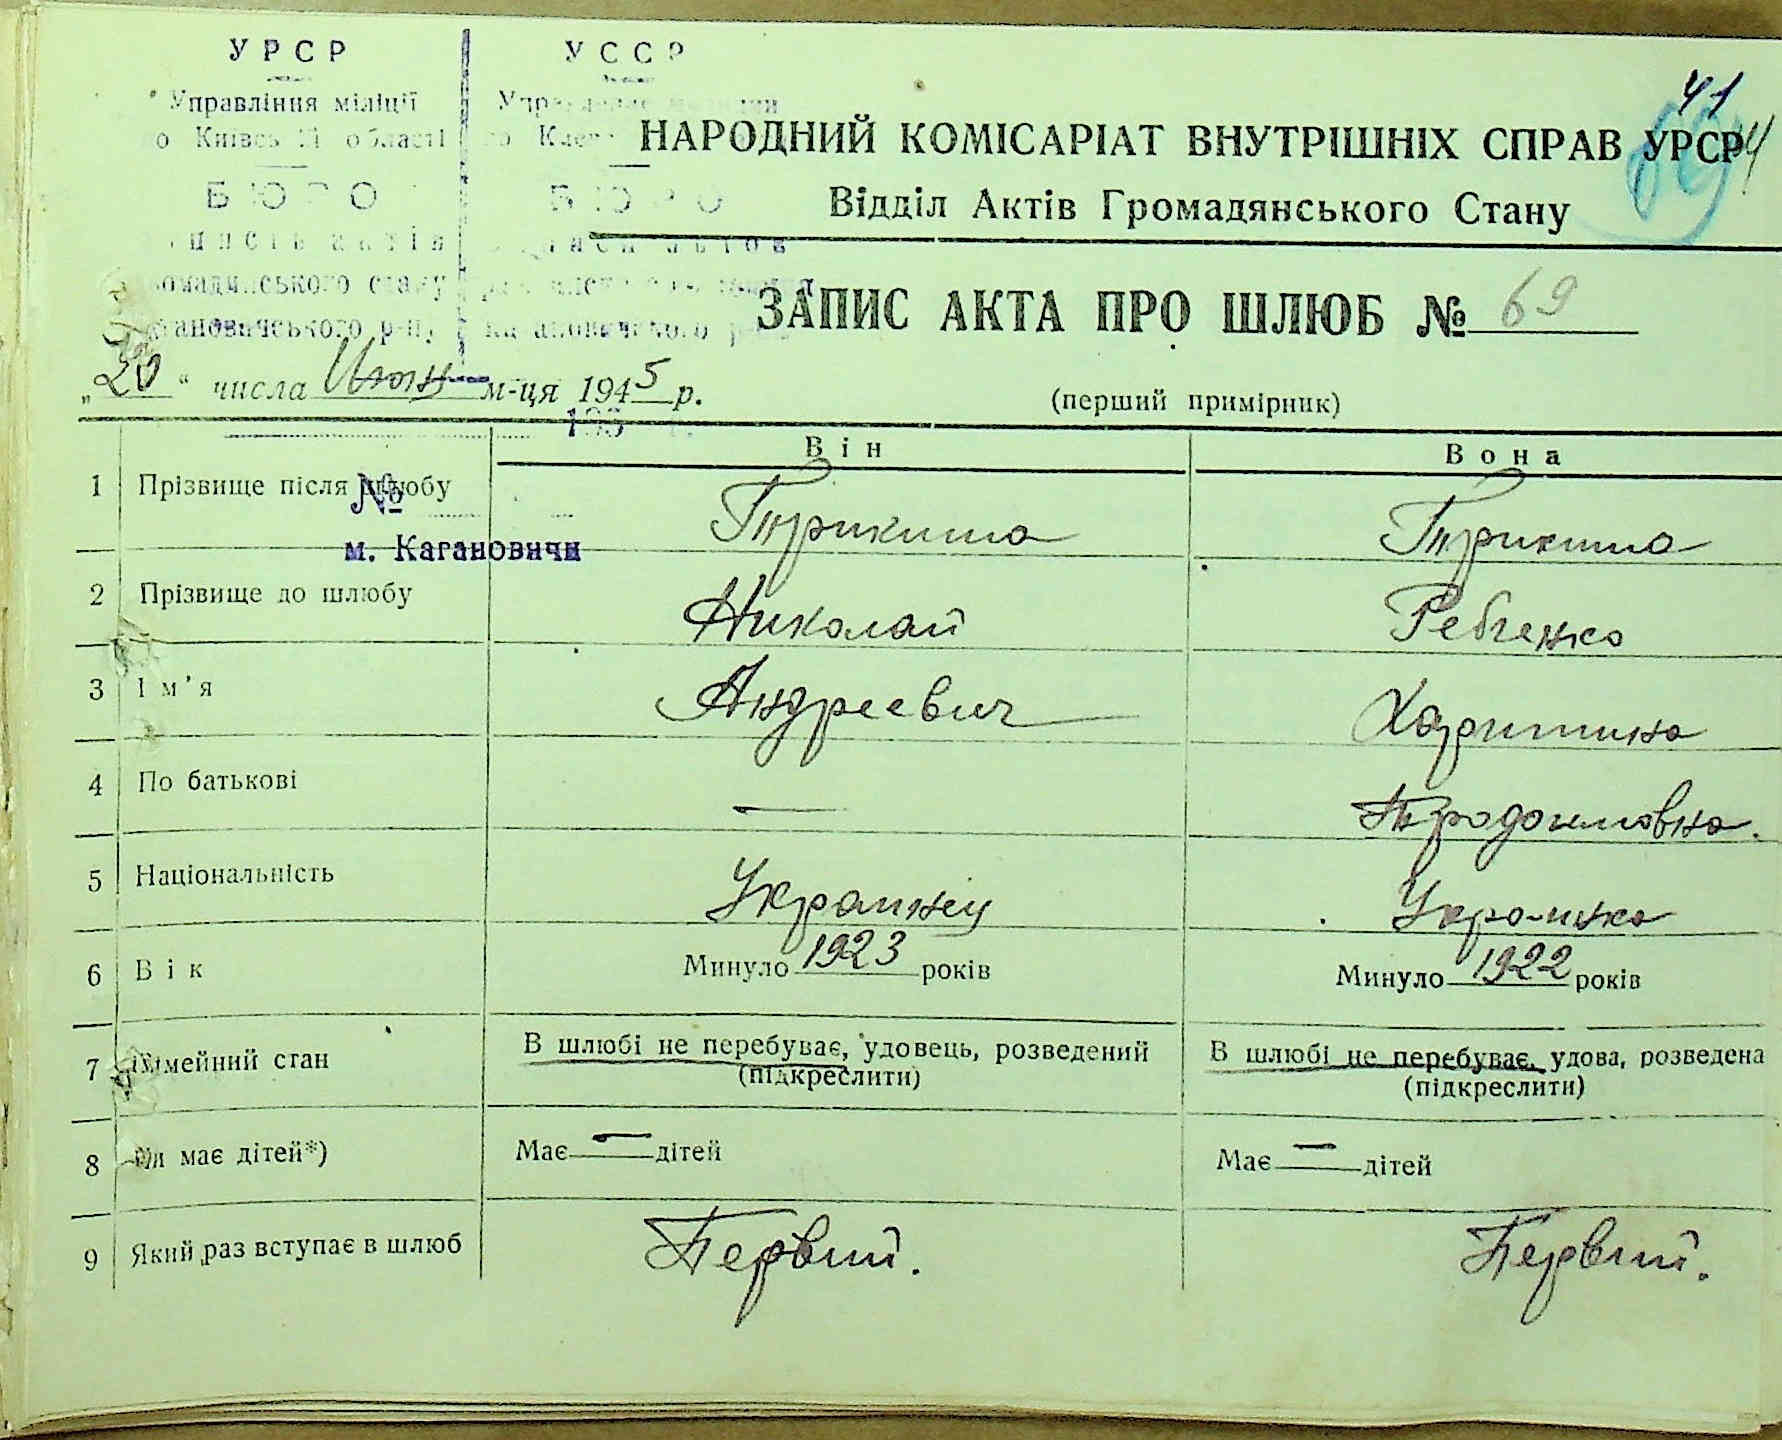 УРСР
Управління міліції
по Київській області
БЮРО
записів актів
громадянського стану
Кагановичського р-ну
УССР
БЮРО
записи актов
41
НАРОДНИЙ КОМІСАРІАТ ВНУТРІШНІХ СПРАВ УРСР
Відділ Актів Громадянського Стану
ЗАПИС АКТА ПРО ШЛЮБ № 69
„20“ числа Июня м-ця 1945 р.
(перший примірник)
193
№
м. Кагановичи
Він Вона
1 Прізвище після шлюбу
2 Прізвище до шлюбу Николай Ребченко
3 Ім'я Андреевич Харитина
4 По батькові —
5 Національність Украинец Украинка
6 Вік Минуло 1923 років Минуло 1922 років
7 Сімейний стан В шлюбі не перебуває, удовець, розведений В шлюбі не перебуває, удова, розведена
(підкреслити) (підкреслити)
8 Чи має дітей*) Має — дітей Має — дітей
9 Який раз вступає в шлюб Первий. Первий.